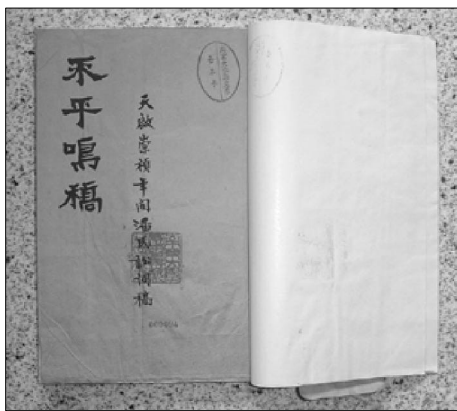 不平鳴稿
天啟崇禎年間潘氏訟詞稿